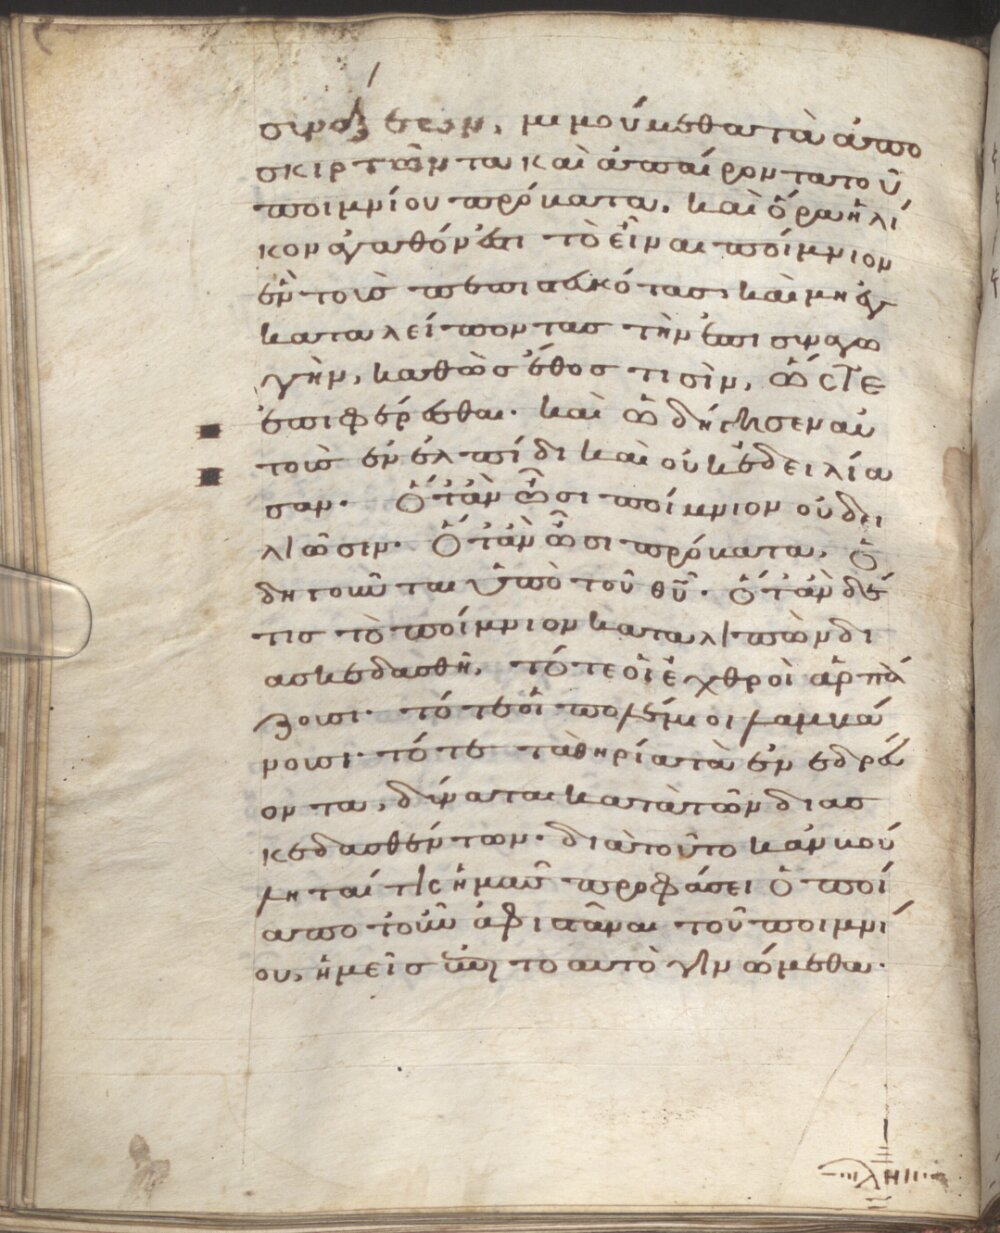 συνάξεων, μιμούμεθα τὰ ἀπο
σκιρτῶντα καὶ ἀπαίροντα τοῦ
ποιμνίου πρόβατα. καὶ ὅρα ἡλί
κον ἀγαθόν ἐστι τὸ εἶναι ποίμνιον
ἐν τοῖς πεπιστευκότας, καὶ μὴ ἐγ
καταλείποντας τὴν ἐπισυναγω
γὴν, καθὼς ἔθος τισὶν, ὥστε
ἐπιφέρεσθαι. καὶ ὡδήγησεν αὐ
τοὺς ἐν ἐλπίδι καὶ οὐκ ἐδειλία
σαν. Ὅταν ὦσι ποίμνιον οὐ δει
λιῶσιν. Ὅταν ὦσι πρόβατα, ὁ
δηγοῦνται ὑπὸ τοῦ θῦ. Ὅταν δέ
τις τὸ ποίμνιον καταλιπὼν δι
ασκεδασθῆ, τότε οἱ ἐχθροὶ ἁρπά
ζουσι. τότε οἱ πολέμιοι λαμβά
νουσι. τότε τὰ θηρία τὰ ἐνεδρεύ
οντα, δύναται κατὰ τῶν διασ
κεδασθέντων. διὰ τοῦτο κἂν βού
ληταί τις ἡμᾶς προφάσει ὁποί
α ποτοῦν ἀφιστᾶναι τοῦ ποιμνί
ου, ἡμεῖς ἐπὶ το αυτὸ γινώμεθα.